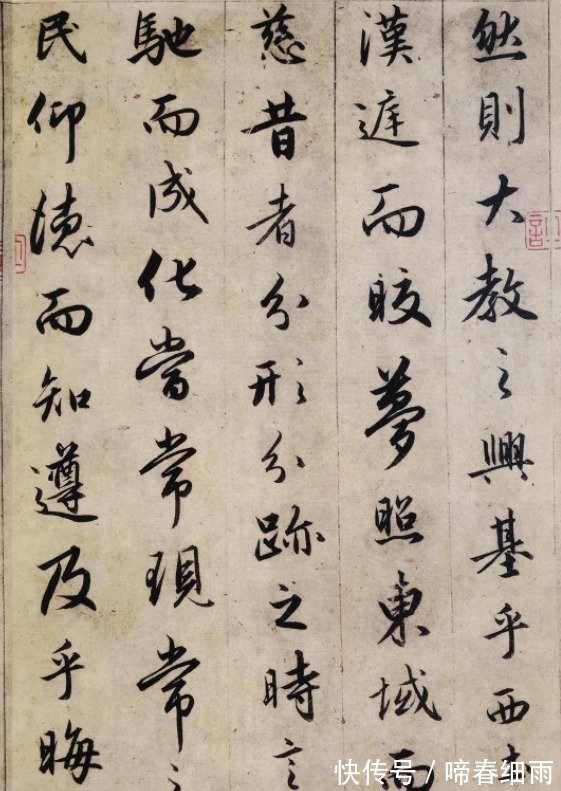 然則大教之興基乎西
漢庭而晈夢照東域而
慈昔者分形分跡之時言
馳而成化當常現常之
民仰徳而知遵及乎晦
快传号 / 啼春细雨